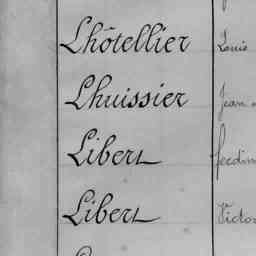 Lhôtellier Louis
Lhuissier Jean
Libert
Libert Victor